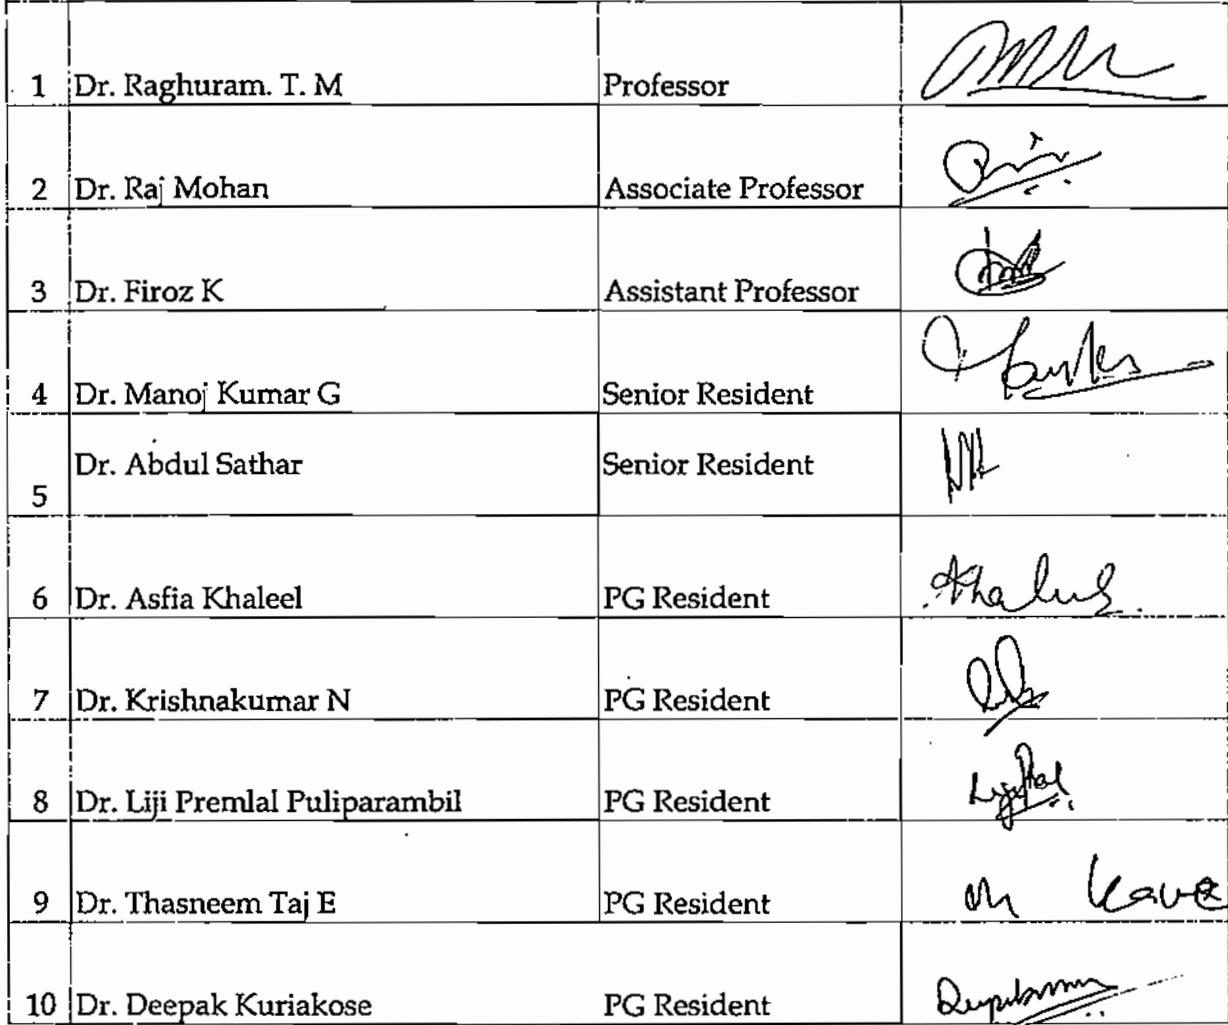 1 Dr. Raghuram. T. M Professor
2 Dr. Raj Mohan Associate Professor
3 Dr. Firoz K Assistant Professor
4 Dr. Manoj Kumar G Senior Resident
Dr. Abdul Sathar Senior Resident
5
6 Dr. Asfia Khaleel PG Resident
7 Dr. Krishnakumar N PG Resident
8 Dr. Liji Premlal Puliparambil PG Resident
9 Dr. Thasneem Taj E PG Resident on leave
10 Dr. Deepak Kuriakose PG Resident